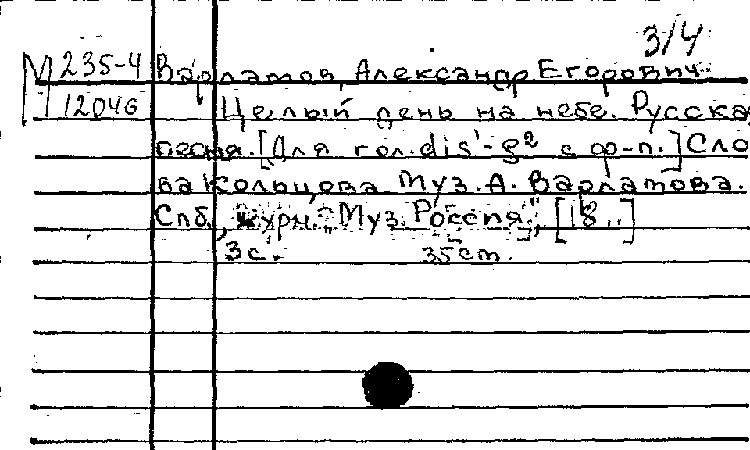 3/4
М 235-4 Варламов, Александр Егорович.
12046 Целый день на небе. Русская
песня. [Для гол. dis¹-g² с ф-п.] Сло
ва Кольцова. Муз. А. Варламова.
Спб., журн. „Муз. Россия", [18..]
3 с. 35 cm.